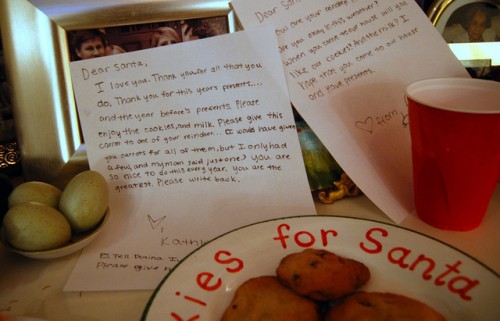 Dear Santa,
I love you. Thank you for all that you
do. Thank you for this years presents....
and the year before's presents. Please
enjoy the cookies, and milk. Please give this
carrot to one of your reindeer... (I would have given
you carrots for all of them, but I only had
a few, and my mom said just one) You are
so nice to do this every year. you are the
greatest. Please write back.
P.S. Tell
Please give
Dear San
you okay in this weather?
When you come to our house will you
like our cookies?
hope when you come to our house
and leave presents.
kies for Santa